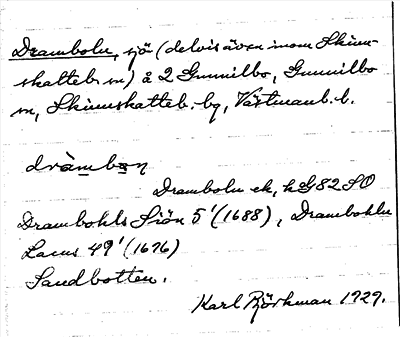 Dramboln, sjö (delvis även inom Skinn-
skatteb. sn) å 2 Gunnilbo, Gunnilbo
sn, Skinnskatteb. bg, Västmanl. l.
dràmbən
Dramboln ek, hG82 SO
Drambohls Siön 5' (1688), Drambohln
Lacus 49' (1676)
Sandbotten.
Karl Björkman 1929.